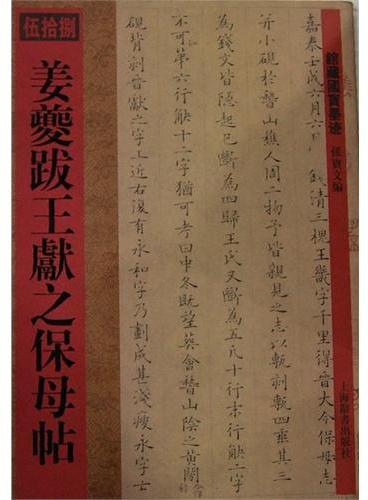 伍拾捌
姜夔跋王獻之保母帖
館藏國寶墨迹
孫寶文編
上海辭書出版社
嘉泰壬戌六月六日錢清三槐王畿字千里得晉大令保母志
并小硯於稽山樵人周二物予皆親見之志以甎刻甎四垂其三
為錢文皆隱起已斷為四歸王氏又斷為五凡十行末行缺二字
不可第六行缺十二字猶可考曰中冬既望葬會稽山陰之黃閍
硯背刻晉獻之字上近右復有永和字乃劃成甚淺瘦永字亡